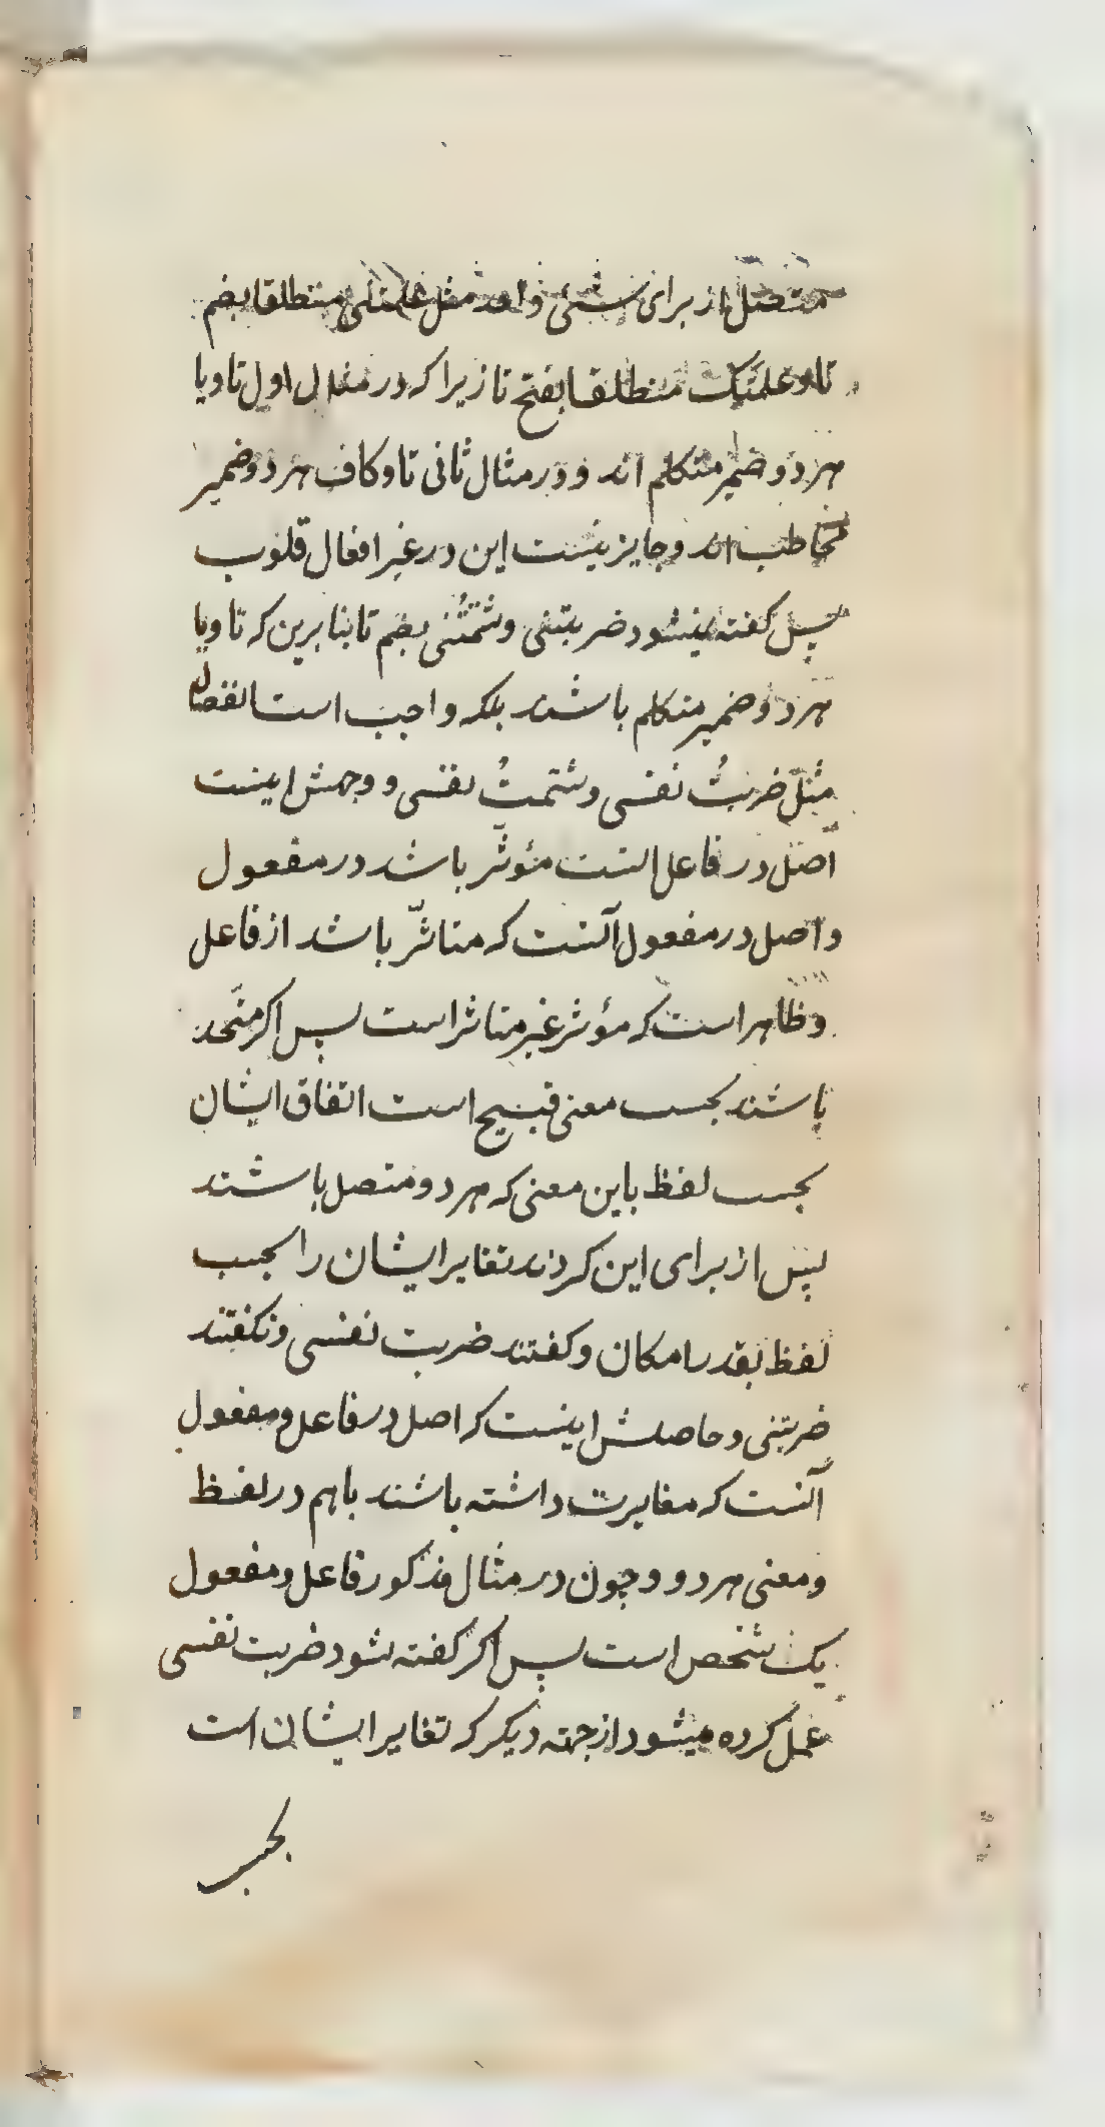 متصل از برای شئی واحد مثل علمتنی منطلقا بضم
تا و علمتک منطلقا بفتح تا زیرا که در مثال اول تا و یا
هر دو ضمیر متکلم اند و در مثال ثانی تا و کاف هر دو ضمیر
مخاطب اند و جایز نیست این در غیر افعال قلوب
پس کفته نیشود ضربتنی و شتمتُنی بضم تا بنا برین که تا و یا
هر دو ضمیر متکلم باشند بلکه واجب است انفصال
مثل ضربتُ نفسی و شتمتُ نفسی و وجهش اینست
اصل در فاعل انست مؤثّر باشد در مفعول
و اصل در مفعول آنست که متاثّر باشد از فاعل
و ظاهر است که مؤثر غیر متاثر است پس اکر متّحد
باشند بحسب معنی قبیح است اتفاق ایشان
بحسب لفظ باین معنی که هر دو متصل باشند
پس از برای این کردند تغایر ایشان را بحسب
لفظ بقدر امکان و کفتند ضربت نفسی و نکفتند
ضربتنی و حاصلش اینست که اصل در فاعل و مفعول
آنست که مغایرت داشته باشند باهم در لفظ
و معنی هر دو و چون در مثال مذکور فاعل و مفعول
یک شخص است پس اکر کفته شود ضربت نفسی
عمل کرده میشود از جهته دیکر که تغایر ایشان است
بحسب